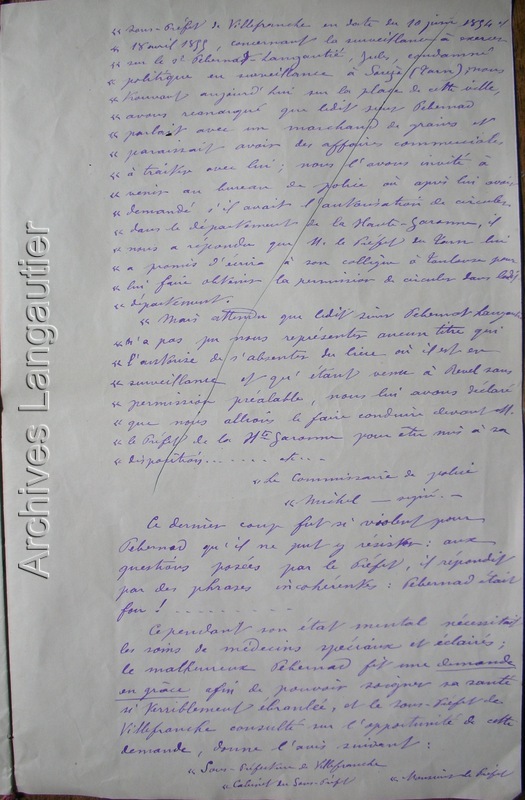 « Sous-Préfet de Villefranche en date du 10 juin 1854 et
« 18 avril 1855, concernant la surveillance à exercer
« sur le sr Pebernad-Langautié, Jules, condamné
« politique en surveillance à Sorèze (Tarn); nous
« trouvant aujourd'hui sur la place de cette ville,
« avons remarqué que ledit sieur Pebernad
« parlait avec un marchand de grains et
« paraissait avoir des affaires commerciales
« à traiter avec lui; nous l'avons invité à
« venir au bureau de police où après lui avoir
« demandé s'il avait l'autorisation de circuler
« dans le département de la Haute-Garonne, il
« nous a répondu que M. le Préfet du Tarn lui
« a promis d'écrire à son collègue à Toulouse pour
« lui faire obtenir la permission de circuler dans ledit
« département.
« Mais attendu que ledit sieur Pebernad
« n'a pas pu nous représenter aucun titre qui
« l'autorise de s'absenter du lieu où il est en
« surveillance et qu'étant venu à Revel sans
« permission préalable, nous lui avons déclaré
« que nous allions le faire conduire devant M.
« le Préfet de la Hte Garonne pour être mis à sa
« disposition........ et...
« Le Commissaire de police
« Michel — signé. —
Ce dernier coup fut si violent pour
Pebernad qu'il ne put y résister: aux
questions posées par le Préfet, il répondit
par des phrases incohérentes: Pebernad était
fou! . . . . . . . . .
Cependant son état mental nécessitait
les soins de médecins spéciaux et éclairés;
le malheureux Pebernad fit une demande
en grâce afin de pouvoir soigner sa santé
si terriblement ébranlée, et le sous-Préfet de
Villefranche consulté sur l'opportunité de cette
demande, donne l'avis suivant:
« Sous-Préfecture de Villefranche
« Cabinet du Sous-Préfet « Monsieur le Préfet
Archives Langautier